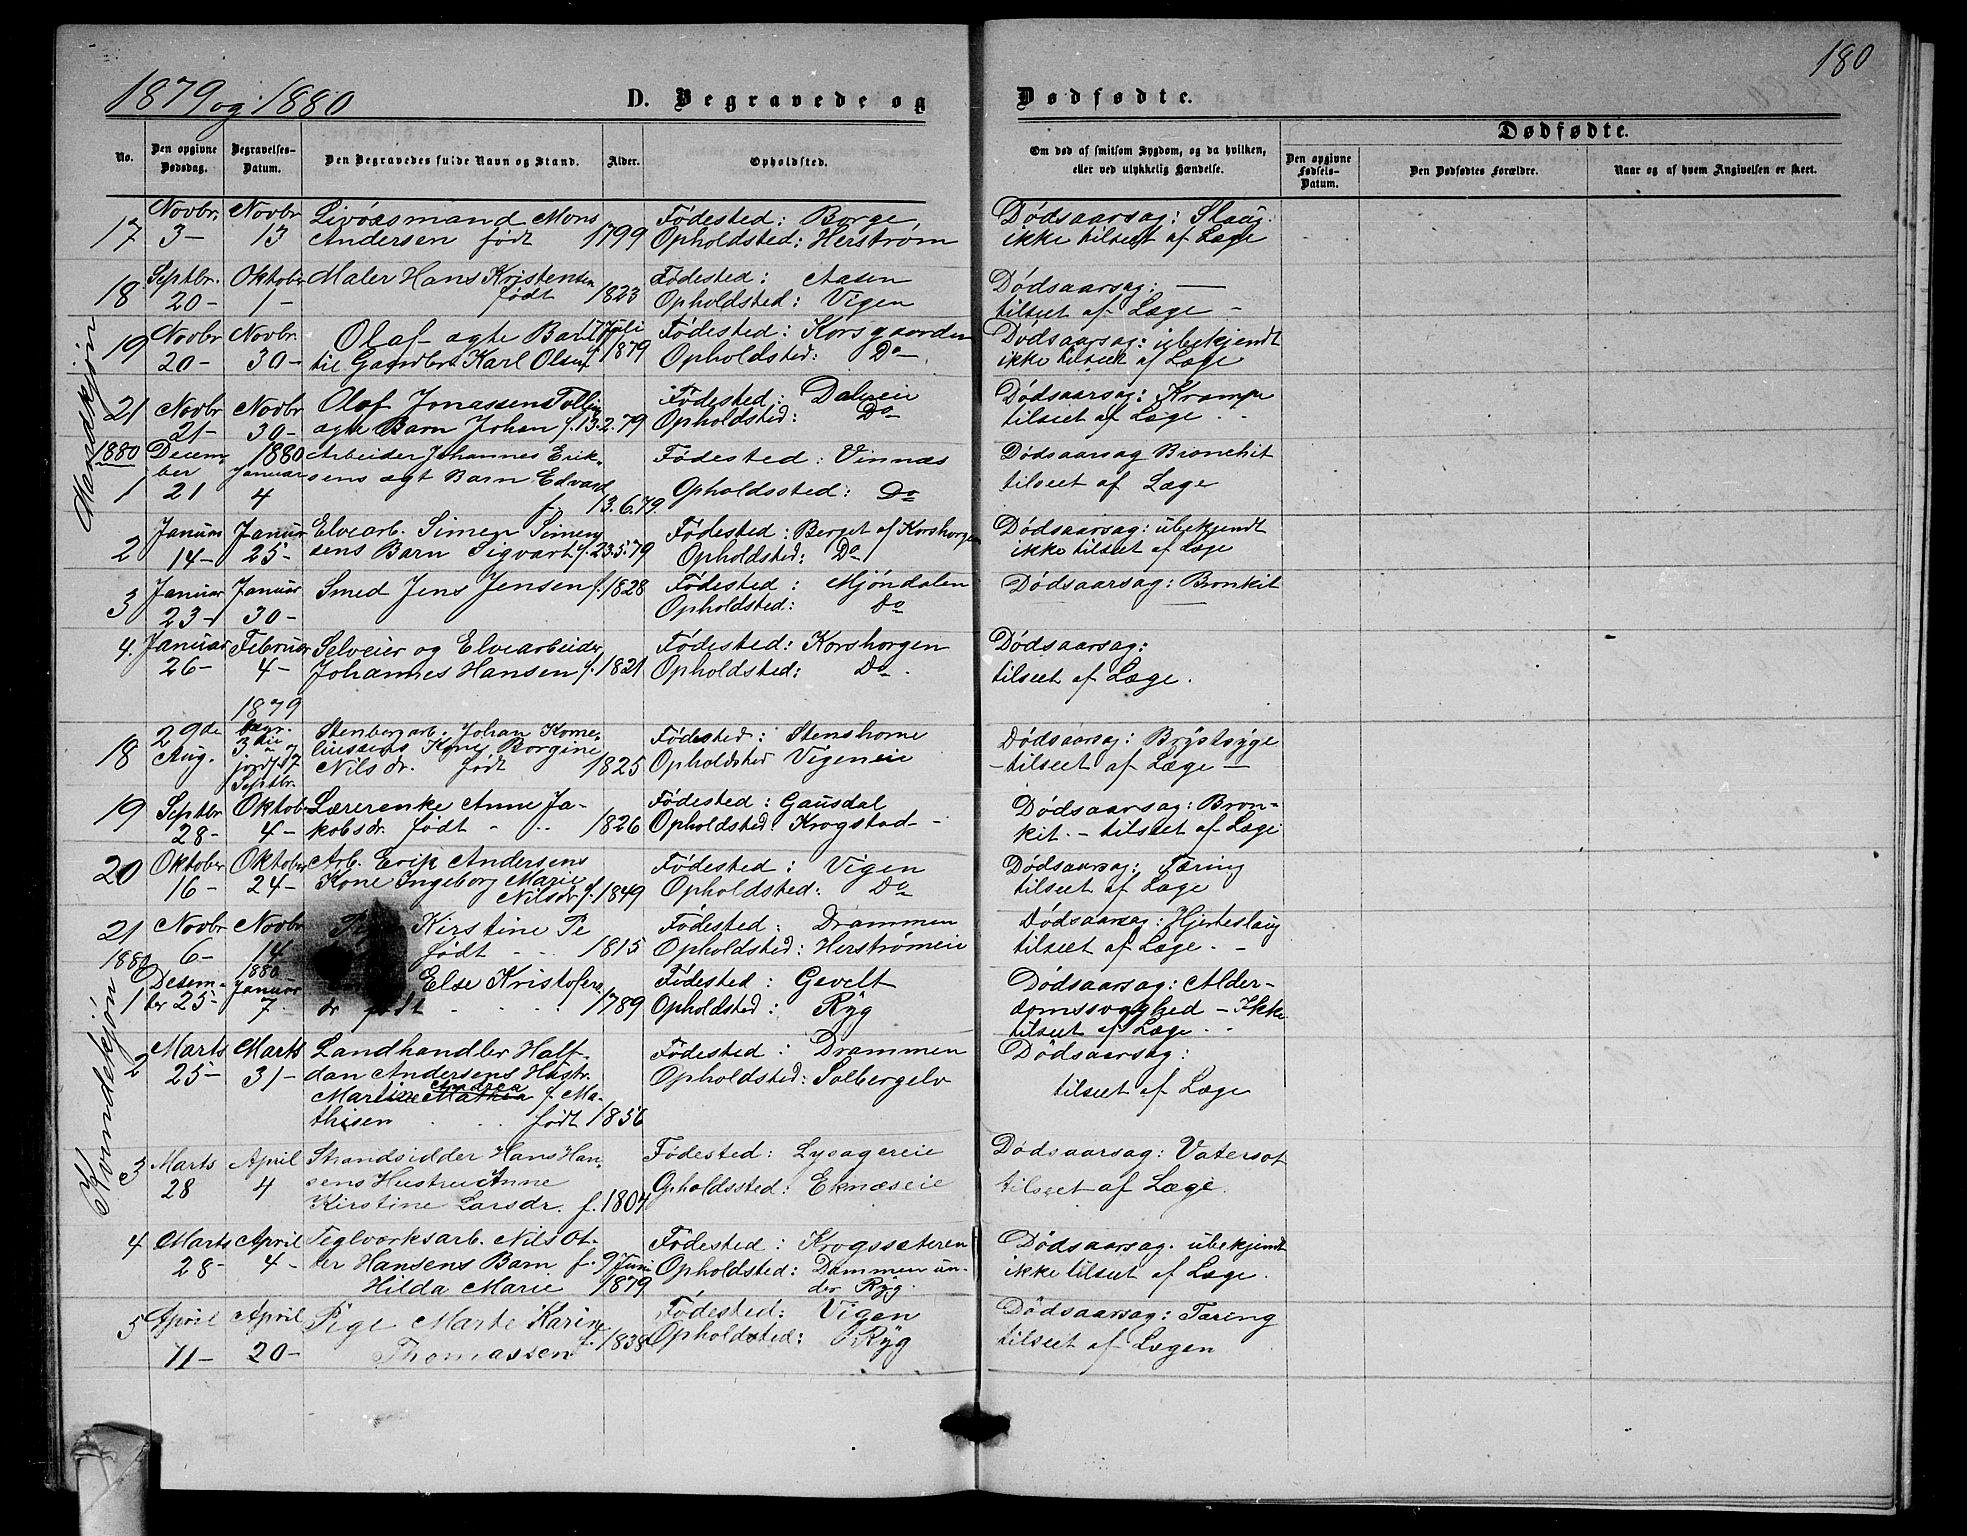 180
1879 og 1880
D. Begravede og Dødfødte.
Dødfødte.
No.
Den opgivne Dødsdag.
Begravelses-Datum.
Den Begravedes fulde Navn og Stand.
Alder.
Opholdsted.
Om død af smitsom Sygdom, og da hvilken, eller ved ulykkelig Hændelse.
Den opgivne Fødsels-Datum.
Den Dødfødtes Forældre.
Naar og af hvem Angivelsen er skeet.
Mandkjøn
Novbr. Novbr Mons Fødested: Borge Dødsaarsag: Slag.
17 3- 13 Andersen født 1799 Opholdsted: Herstrøm ikke tilseet af Læge
Septbr. Oktober Maler Hans Kristensen Fødested: Aasen Dødsaarsag: —
18 20- 1- født 1823 Opholdsted: Vigen tilseet af Læge -
19 Novbr Novbr. Olaf ægte Barn Juli Fødested: Korsgaarden Dødsaarsag: ubekjendt
20- 30- til Karl Olsen f. 1879 Opholdsted: Do ikke tilseet af Læge
21 Novbr Novbr Olaf Jonassen Fødested: Dalseie Dødsaarsag: Krampe
21- 30- ægte Barn Johan f. 13.2.79 Opholdsted: Do tilseet af Læge - -
1880 Decem- 1880 Arbeider Johannes Erik- Fødested: Vinnæs Dødsaarsag Bronchit
1 ber 21 Januar 4 sens ægt Barn Edvard Opholdssted: Do tilseet af Læge
f. 13.6.79
Januar Januar Elvearb. Simen Simen- Fødested: Berget af Korshorgen Dødsaarsag: ubekjendt
2 14- 25- sens Barn Sigvart f. 23.5.79 Opholdsted: Do ikke tilseet af Læge
3 Januar Januar Smed Jens Jensen f. 1828 Fødested: Mjøndalen Dødsaarsag: Bronkit
23- 30- Opholdsted: Do —
4. Januar Februar Selveier og Elvearbeider Fødested: Korshorgen Dødsaarsag:
26- 4- Johannes Hansen f. 1821 Opholdsted: Do. tilseet af Læge.
Kvindekjøn
1879
18 29de Aug. 3die og jordf. 17 Septbr. Stenbergarb. Johan Korne- Fødested: Stenshorne Dødsaarsag: Brystsyge
liussens Kone Borgine Opholdsted Vigeneie -tilseet af Læge -
Nilsdr. født 1825
19 Septbr Oktob. Lærerenke Anne Ja- Fødested: Gausdal Dødsaarsag: Bron-
28- 4- kobsdr. født - - - 1826 Opholdsted: Krogstad - kit. - tilseet af Læge
20 Oktober Oktober Arb. Erik Andersens Fødested: Vigen Dødsaarsag: Tæring
16- 24- Kone Ingeborg Marie Opholdsted: Do tilseet af Læge
Nilsdr. f. 1849
21 Novbr Novbr Kirstine Pe Fødested: Drammen Dødsaarsag: Hjerteslag
6- 14 født - - - 1815 Opholdsted: Herstrømeie tilseet af Læge. -
1880 Desem- 1880 Else Kristofers- Fødested: Gevelt Dødsaarsag: Alder-
1 ber 25- Januar 7. dr født - - - 1789 Opholdsted: Ryg domssvaghed - Ikke
tilseet af Læge. - -
2 Marts Marts Landhandler Half- Fødested: Drammen Dødsaarsag:
25- 31- dan Andersens Hustr. Opholdsted: Solbergelv tilseet af Læge
Andrea
Martine Mathea f. Ma-
thisen - - - født 1856
3 Marts April Strandsidder Hans Han- Fødested: Lysagereie Dødsaarsag: Vatersot
28 4 sens Hustru Anne Opholdssted: Eknæseie tilseet af Læge.
Kirstine Larsdr. f. 1804
4 Marts April Teglværksarb. Nils Ot- Fødested: Krogssæteren Dødsaarsag. ubekjendt
28- 4- ter Hansens Barn f. 9 Juni Opholdsted: Dammen un- ikke tilseet af Læge.
Hilda Marie 1879 der Ryg.
5 April April Pige Marte Karine Fødested: Vigen Dødsaarsag: Tæring
11- 20- Thomassen f. 1838 Opholdsted: Ryg tilseet af Lægen